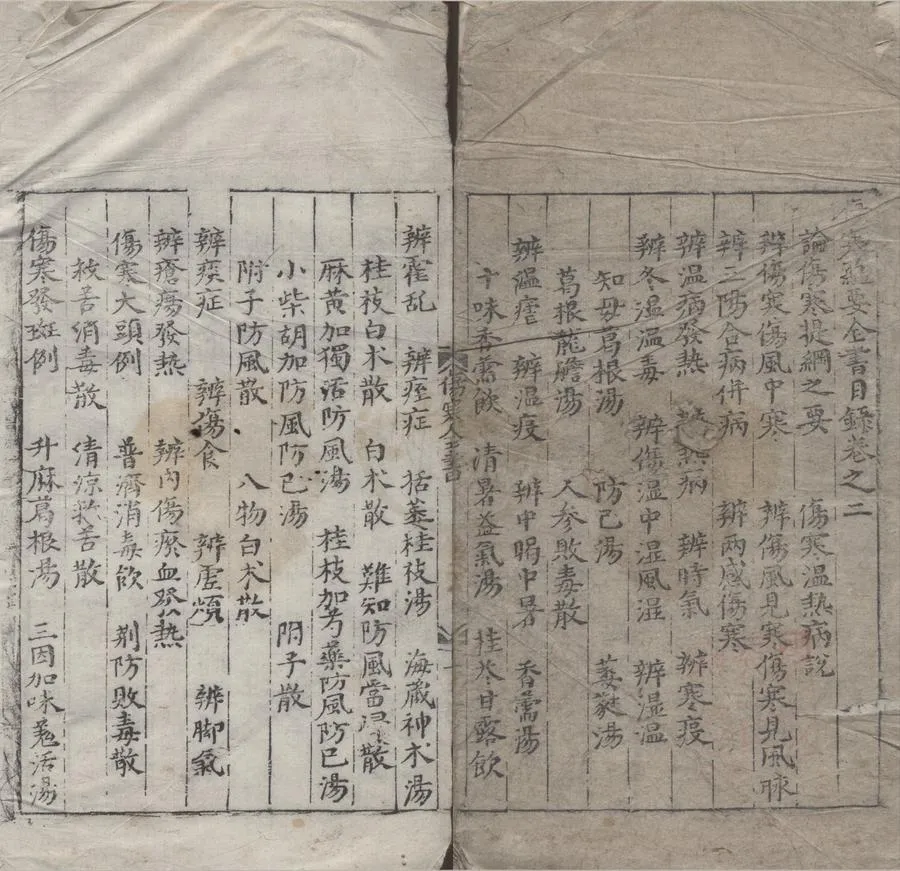 寒紀要全書目錄卷之二
論傷寒提綱之要 傷寒温熱病說
辨傷寒傷風中寒 辨傷風見寒傷寒見風脉
辨三陽合病併病 辨兩感傷寒
辨温病發熱 辨熱病 辨時氣 辨寒疫
辨冬温温毒 辨傷湿中湿風湿 辨湿温
知母葛根湯 防己湯 萎蕤湯
葛根龍膽湯 人参敗毒散
辨温瘧 辨温疫 辨中暍中暑 香薷湯
十味香薷飲 清暑益氣湯 桂苓甘露飲
傷寒全書
辨霍乱 辨痓症 括蒌桂枝湯 海藏神术湯
桂枝白术散 白术散 難知防風當归散
麻黄加獨活防風湯 桂枝加芍藥防風防已湯
小柴胡加防風防已湯 附子散
附子防風散 八物白术散
辨痰症 辨傷食 辨虚煩 辨脚氣
辨瘡瘍發熱 辨内傷瘀血發熱
傷寒大頭例 普濟消毒飲 荆防敗毒散
救苦消毒散 清凉救苦散
傷寒發斑例 升麻葛根湯 三因加味羗活湯